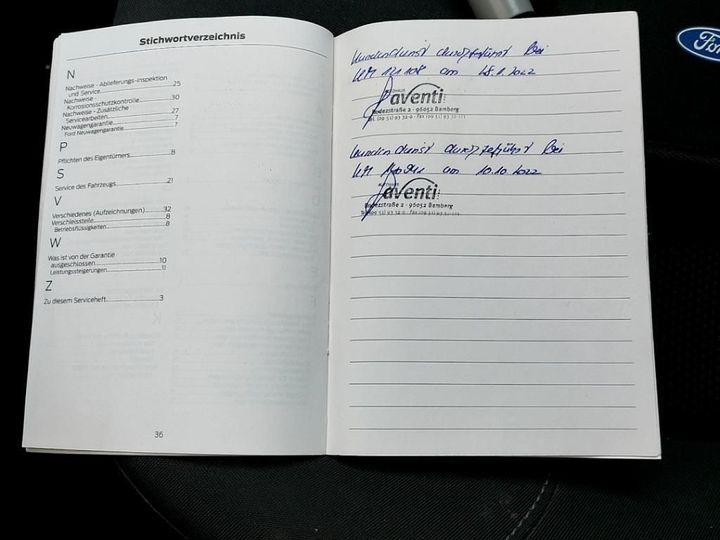 Stichwortverzeichnis
N
Nachweise - Ablieferungs-Inspektion
und Service 25
Nachweise -
Korrosionsschutzkontrolle 30
Nachweise - Zusätzliche
Servicearbeiten 27
Neuwagengarantie 7
Ford Neuwagengarantie 7
P
Pflichten des Eigentümers 8
S
Service des Fahrzeugs 21
V
Verschiedenes (Aufzeichnungen) 32
Verschleissteile 8
Betriebsflüssigkeiten 8
W
Was ist von der Garantie
ausgeschlossen 10
Leistungssteigerungen 11
Z
Zu diesem Serviceheft 3
36
Kundendienst durchgeführt bei
KM 121108 am 2022
aventi
Rodezstraße 2 - 96052 Bamberg
Tel. (09 51) 93 32-0 - Fax (09 51) 93
Kundendienst durchgeführt bei
KM am 10.10.2022
aventi
Rodezstraße 2 - 96052 Bamberg
Tel. (09 51) 93 32-0 - Fax (09 51) 93
Ford